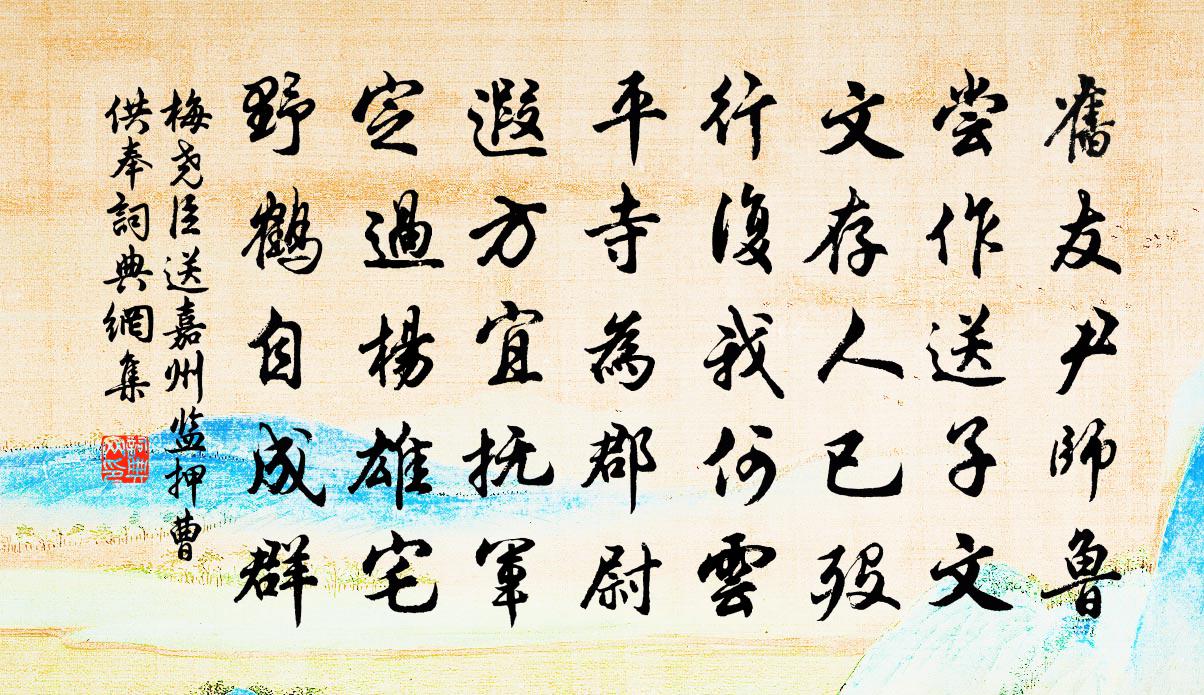 舊友尹師魯
嘗作送子文
文存人已歿
行復我何雲
平寺為郡尉
遐方宜撫軍
定過楊雄宅
野鶴自成群
梅堯臣送嘉州监押曹
供奉詞典網集